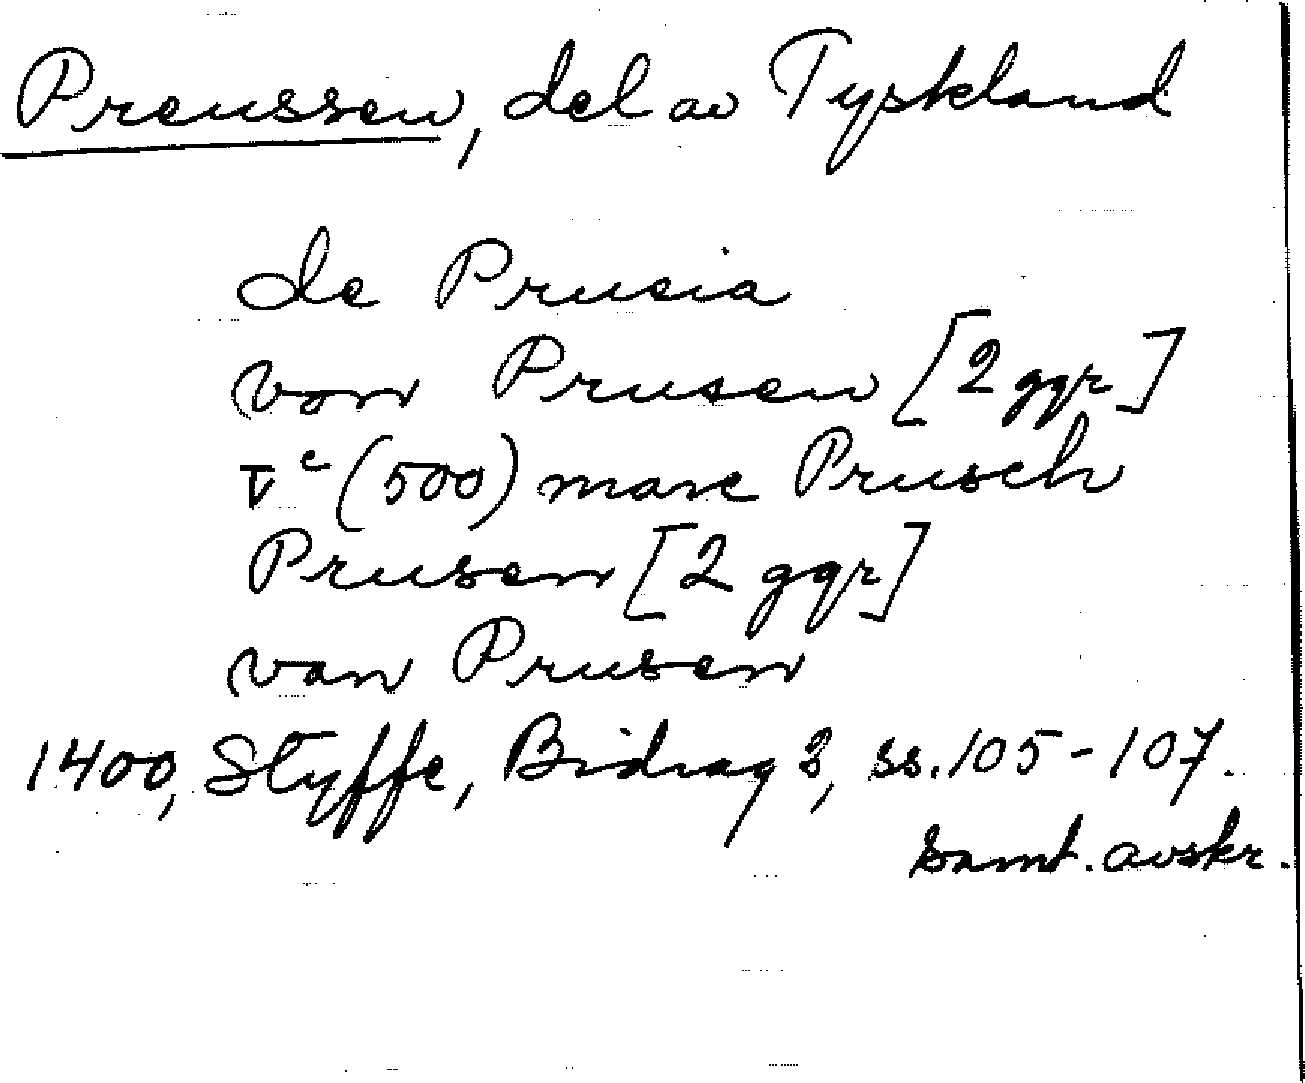 Preussen, del av Tyskland
de Prusia
von Prusen [2 ggr]
vᶜ (500) marc Prusch
Prusen [2 ggr]
van Prusen
1400, Styffe, Bidrag 3, ss. 105-107.
samt. avskr.